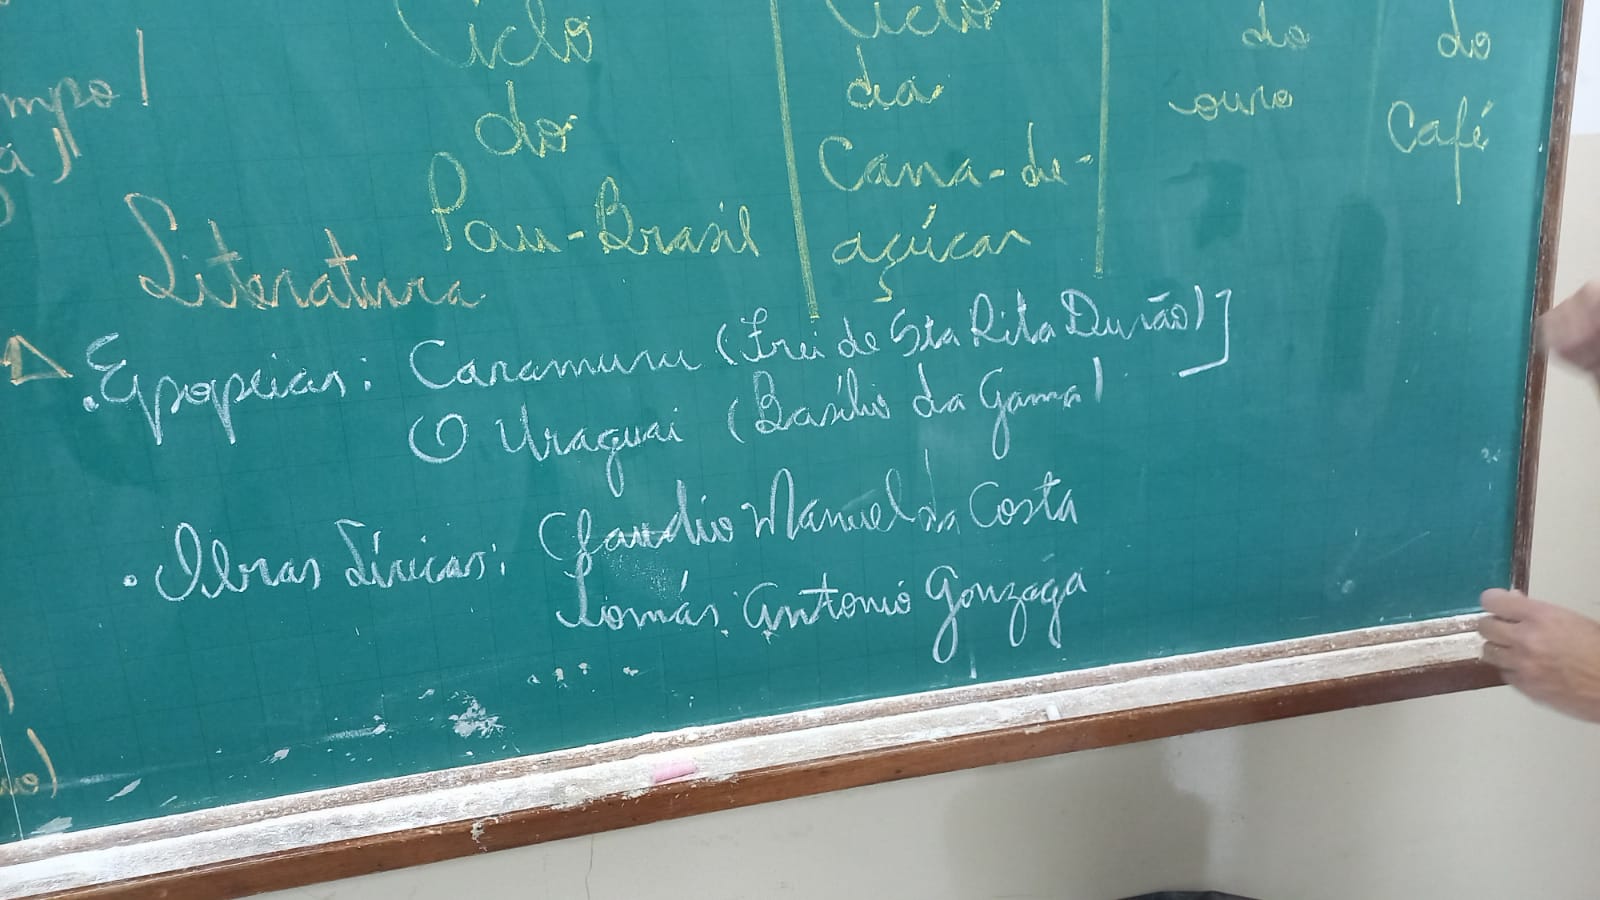 Ciclo
do
Pau-Brasil
Ciclo
da
Cana-de-
açúcar
do
ouro
do
Café
Literatura
. Epopeias: Caramuru (Frei de Sta Rita Durão)]
O Uraguai (Basílio da Gama)
. Obras Líricas: Claudio Manuel da Costa
Tomás Antonio Gonzaga
...